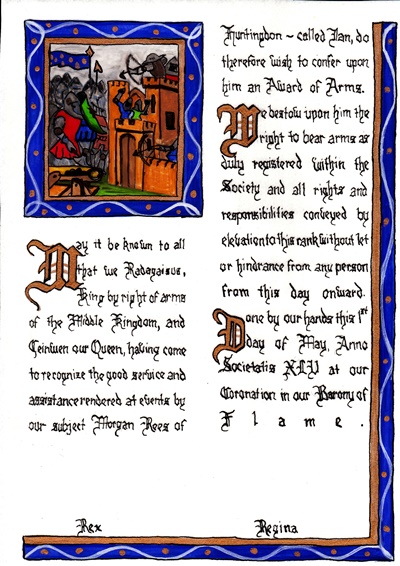 May it be known to all
that we Radagaisus,
King by right of arms
of the Middle Kingdom, and
Ceinwen our Queen, having come
to recognize the good service and
assistance rendered at events by
our subject Morgan Rees of
Huntingdon ~ called Ian, do
therefore wish to confer upon
him an Award of Arms.
We bestow upon him the
right to bear arms as
duly registered within the
Society and all rights and
responsibilities conveyed by
elevation to this rank without let
or hindrance from any person
from this day onward.
Done by our hands this 1st
day of May, Anno
Societatis XLV at our
Coronation in our Barony of
Flame.
Rex
Regina